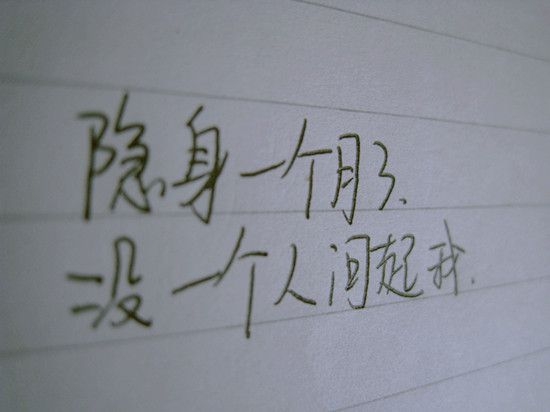 隐身一个月了.
没一个人问起我.